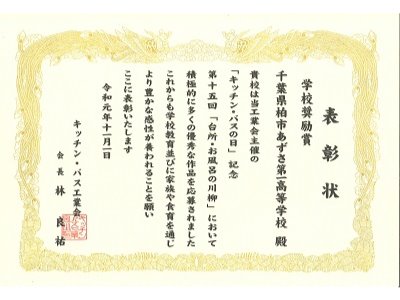 表彰状
学校奨励賞
千葉県柏市あずさ第一高等学校 殿
貴校は当工業会主催の
「キッチン・バスの日」記念
第十五回「台所・お風呂の川柳」において
積極的に多くの優秀な作品を応募されました
これからも学校教育並びに家族や食育を通じ
より豊かな感性が養われることを願い
ここに表彰いたします
令和元年十一月一日
キッチン・バス工業会
会長 林 良祐